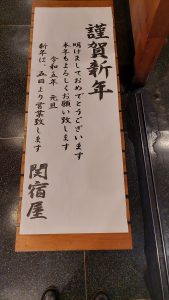 謹賀新年
明けましておめでとうございます
本年もよろしくお願い致します
令和五年 元旦
新年は、五日より営業致します
関宿屋